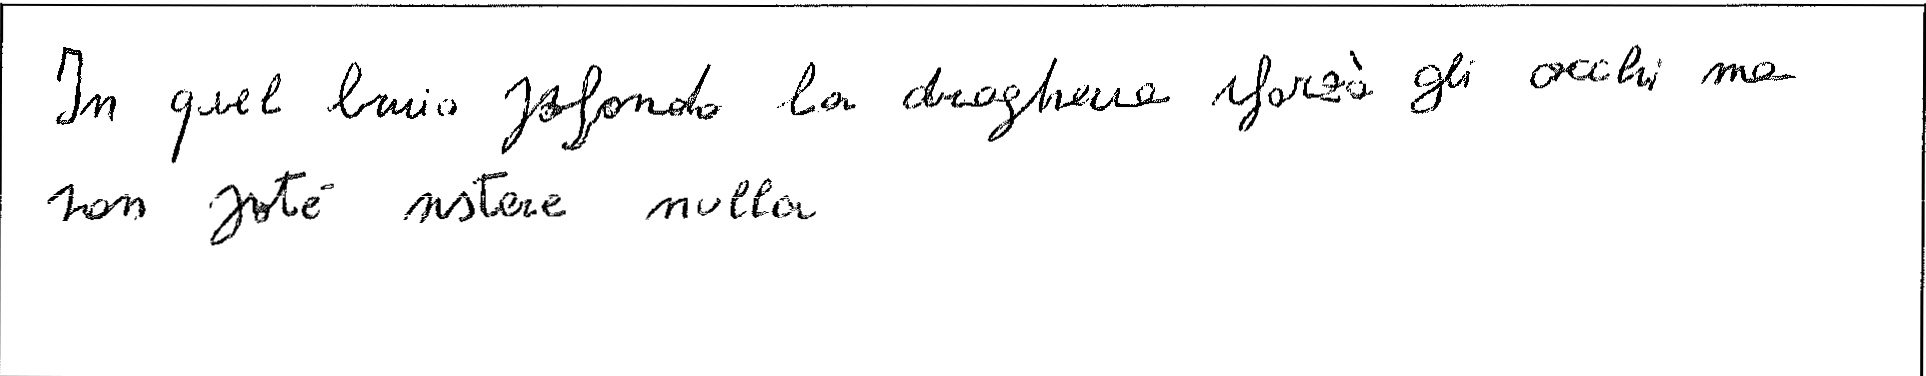 In quel buio profondo la draghessa sforzò gli occhi ma
non poté vistare nulla